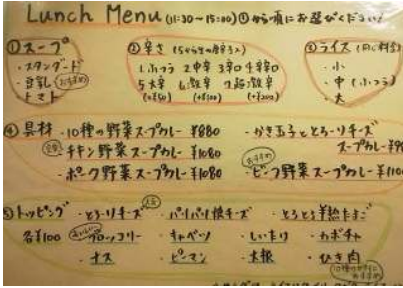 Lunch Menu (11:30~15:30) ①から順にお選びください!
①スープ
・スタンダード
・豆乳 おすすめ
・トマト
②辛さ
1.ふつう 2.中辛 3.辛口 4.辛辛口
5.大辛 6.激辛 7.超激辛
(+¥50) (+¥100) (+¥200)
③ライス (同じ料金)
・小
・中 (ふつう)
・大
④具材 ・10種の野菜スープカレー ¥880
・チキン野菜スープカレー ¥1080
・ポーク野菜スープカレー ¥1080
・かき玉子ととろ~りチーズ
スープカレー
おすすめ
・ビーフ野菜スープカレー
⑤トッピング ・とろ~りチーズ ・パリパリ焼チーズ ・とろとろ半熟たまご
各¥100 ・ブロッコリー ・キャベツ ・しいたけ ・カボチャ
・ナス ・ピーマン ・大根 ・ひき肉